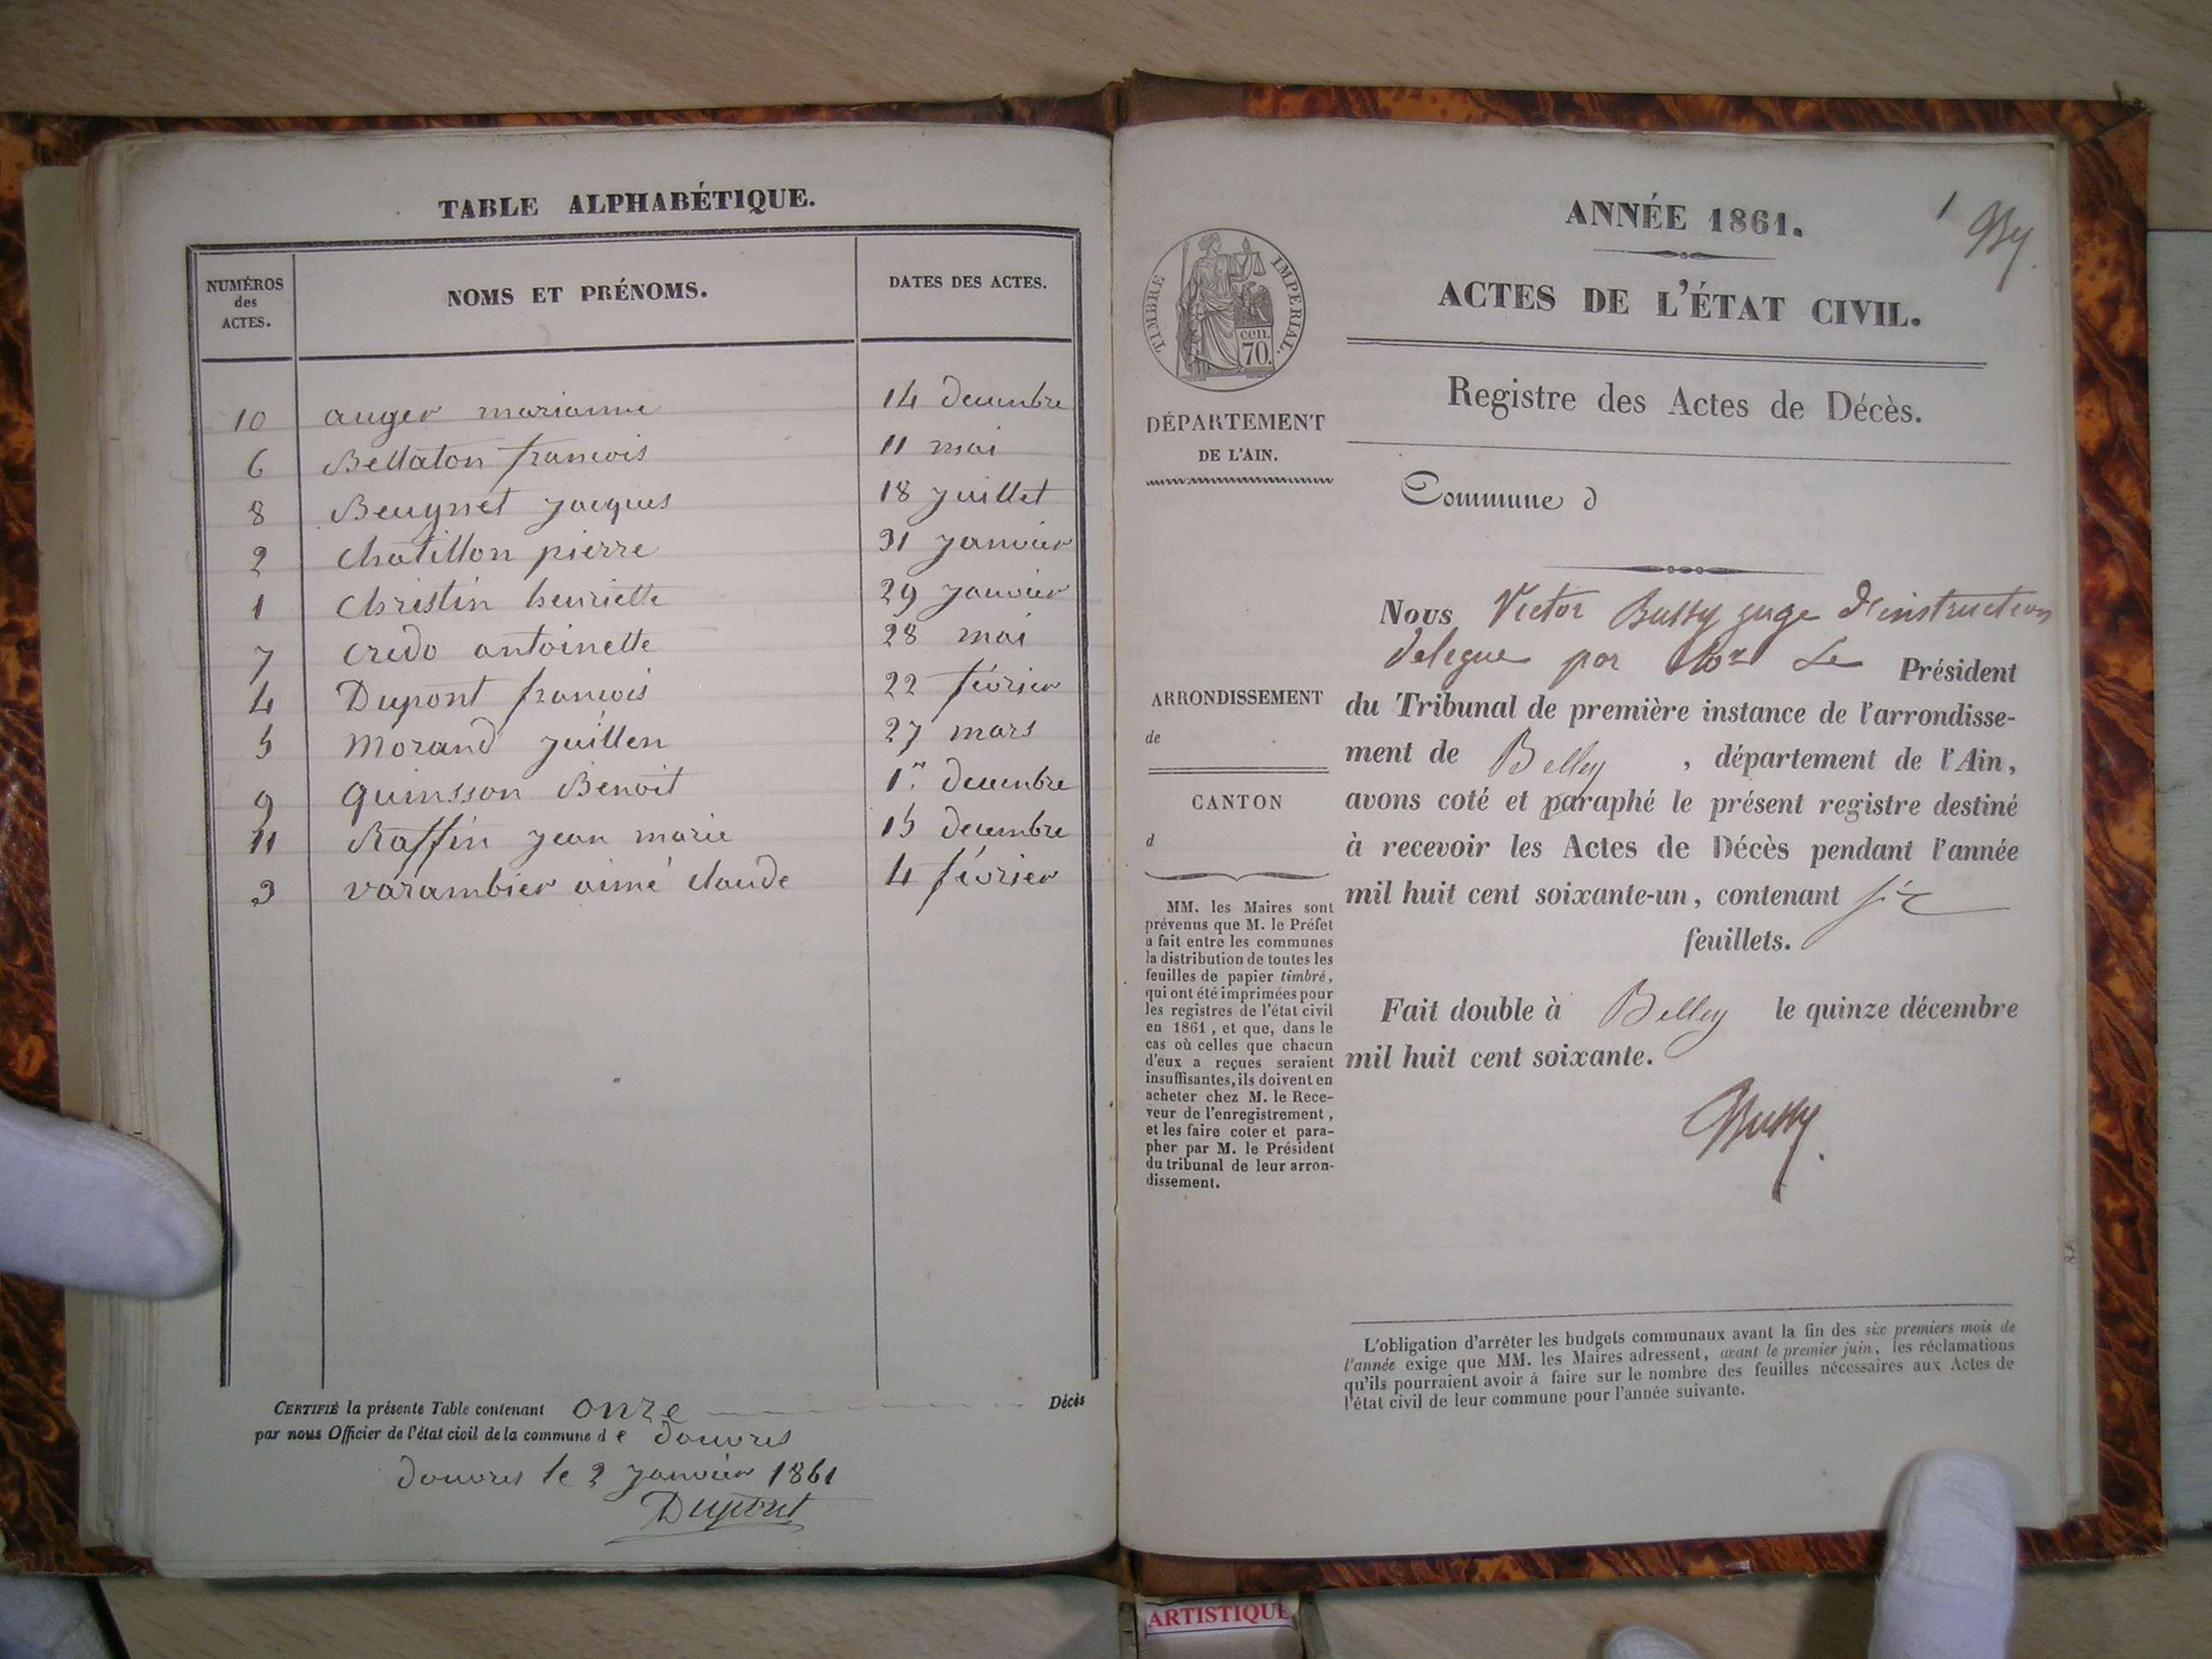 TABLE ALPHABÉTIQUE.
NUMÉROS des ACTES. NOMS ET PRÉNOMS. DATES DES ACTES.
10 auger marianne 14 decembre
6 Bellaton francois 11 mai
8 Beugnet jacques 18 juillet
2 chatillon pierre 31 janvier
1 christin henriette 29 janvier
7 credo antoinette 28 mai
4 Dupont francois 22 février
5 morand juillen 27 mars
9 quinsson Benoit 1er decembre
11 Raffin jean marie 15 decembre
3 varambier aimé claude 4 février
CERTIFIÉ la présente Table contenant onze Décès
par nous Officier de l'état civil de la commune de douvres
douvres le 2 janvier 1861
Dupont
1 By
ANNÉE 1861.
ACTES DE L'ÉTAT CIVIL.
Registre des Actes de Décès.
TIMBRE IMPERIAL.
cen.
70.
DÉPARTEMENT
DE L'AIN.
Commune d
ARRONDISSEMENT
de
CANTON
d
MM. les Maires sont
prévenus que M. le Préfet
a fait entre les communes
la distribution de toutes les
feuilles de papier timbré,
qui ont été imprimées pour
les registres de l'état civil
en 1861, et que, dans le
cas où celles que chacun
d'eux a reçues seraient
insuffisantes, ils doivent en
acheter chez M. le Rece-
veur de l'enregistrement,
et les faire coter et para-
pher par M. le Président
du tribunal de leur arron-
dissement.
Nous Victor Bussy juge d'instruction
delegue par Mr Le Président
du Tribunal de première instance de l'arrondisse-
ment de Belley, département de l'Ain,
avons coté et paraphé le présent registre destiné
à recevoir les Actes de Décès pendant l'année
mil huit cent soixante-un, contenant six
feuillets.
Fait double à Belley le quinze décembre
mil huit cent soixante.
Bussy
L'obligation d'arrêter les budgets communaux avant la fin des six premiers mois de
l'année exige que MM. les Maires adressent, avant le premier juin, les réclamations
qu'ils pourraient avoir à faire sur le nombre des feuilles nécessaires aux Actes de
l'état civil de leur commune pour l'année suivante.
ARTISTIQUE